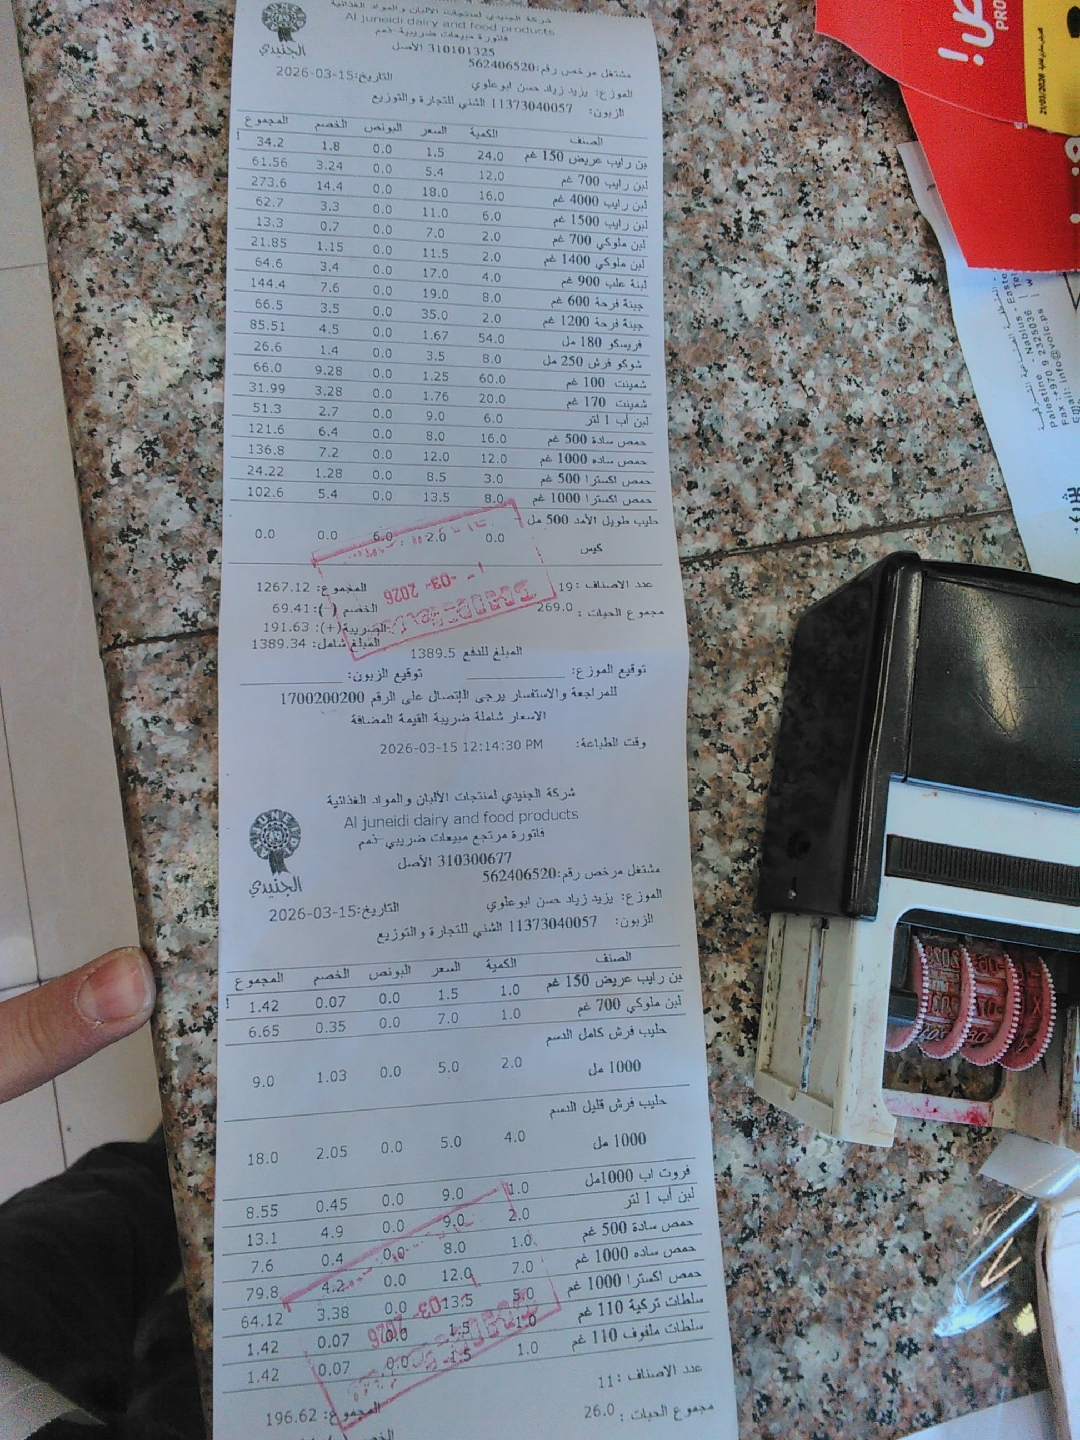 شركة الجنيدي لمنتجات الألبان والمواد الغذائية
Al juneidi dairy and food products
فاتورة مبيعات ضريبية -ذمم
310101325 الأصل
الجنيدي
مشتغل مرخص رقم:562406520
الموزع: يزيد زياد حسن ابوعلوي التاريخ:15-03-2026
الزبون: 11373040057 الشني للتجارة والتوزيع
الصنف الكمية السعر البونص الخصم المجموع
بن رايب عريض 150 غم 24.0 1.5 0.0 1.8 34.2
لبن رايب 700 غم 12.0 5.4 0.0 3.24 61.56
لبن رايب 4000 غم 16.0 18.0 0.0 14.4 273.6
لبن رايب 1500 غم 6.0 11.0 0.0 3.3 62.7
لبن ملوكي 700 غم 2.0 7.0 0.0 0.7 13.3
لبن ملوكي 1400 غم 2.0 11.5 0.0 1.15 21.85
لبنة علب 900 غم 4.0 17.0 0.0 3.4 64.6
جبنة فرحة 600 غم 8.0 19.0 0.0 7.6 144.4
جبنة فرحة 1200 غم 2.0 35.0 0.0 3.5 66.5
فريسكو 180 مل 54.0 1.67 0.0 4.5 85.51
شوكو فرش 250 مل 8.0 3.5 0.0 1.4 26.6
شمينت 100 غم 60.0 1.25 0.0 9.28 66.0
شمينت 170 غم 20.0 1.76 0.0 3.28 31.99
لبن أب 1 لتر 6.0 9.0 0.0 2.7 51.3
حمص سادة 500 غم 16.0 8.0 0.0 6.4 121.6
حمص ساده 1000 غم 12.0 12.0 0.0 7.2 136.8
حمص اكسترا 500 غم 3.0 8.5 0.0 1.28 24.22
حمص اكسترا 1000 غم 8.0 13.5 0.0 5.4 102.6
حليب طويل الأمد 500 مل
كيس 0.0 2.0 6.0 0.0 0.0
عدد الاصناف : 19 المجموع: 1267.12
مجموع الحبات : 269.0 الخصم (-): 69.41
الضريبة(+): 191.63
المبلغ شامل: 1389.34
المبلغ للدفع 1389.5
-03- 2026
توقيع الموزع: توقيع الزبون:
للمراجعة والاستفسار يرجى الإتصال على الرقم 1700200200
الاسعار شاملة ضريبة القيمة المضافة
وقت الطباعة: 2026-03-15 12:14:30 PM
شركة الجنيدي لمنتجات الألبان والمواد الغذائية
Al juneidi dairy and food products
فاتورة مرتجع مبيعات ضريبي -ذمم
310300677 الأصل
الجنيدي
مشتغل مرخص رقم:562406520
الموزع: يزيد زياد حسن ابوعلوي التاريخ:15-03-2026
الزبون: 11373040057 الشني للتجارة والتوزيع
الصنف الكمية السعر البونص الخصم المجموع
بن رايب عريض 150 غم 1.0 1.5 0.0 0.07 1.42
لبن ملوكي 700 غم 1.0 7.0 0.0 0.35 6.65
حليب فرش كامل الدسم
1000 مل 2.0 5.0 0.0 1.03 9.0
حليب فرش قليل الدسم
1000 مل 4.0 5.0 0.0 2.05 18.0
فروت اب 1000مل 1.0 9.0 0.0 0.45 8.55
لبن أب 1 لتر 2.0 9.0 0.0 4.9 13.1
حمص سادة 500 غم 1.0 8.0 0.0 0.4 7.6
حمص ساده 1000 غم 7.0 12.0 0.0 4.2 79.8
حمص اكسترا 1000 غم 5.0 13.5 0.0 3.38 64.12
سلطات تركية 110 غم 1.0 1.5 0.0 0.07 1.42
سلطات ملفوف 110 غم 1.0 1.5 0.0 0.07 1.42
-03- 2026
عدد الاصناف : 11 المجموع: 196.62
مجموع الحبات : 26.0 الخصم
PRO
21/03/2026
Palestine - Nablus - Easte
Fax : +970 9 2325036 | Te
Email: info@volc.ps | w